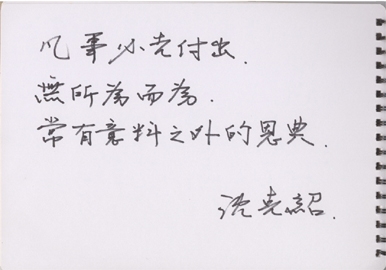 凡事必先付出.
無所為而為.
常有意料之外的恩典.
沈克紹.